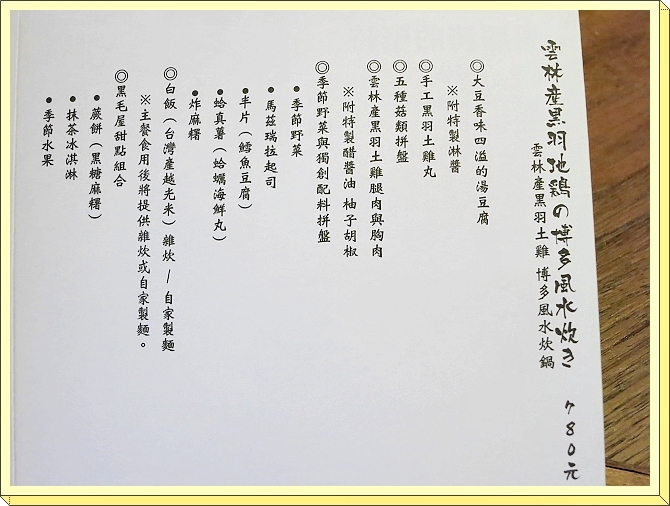 雲林産黒羽地鶏の博多風水炊き 780元
雲林産黑羽土雞 博多風水炊鍋
◎大豆香味四溢的湯豆腐
※附特製淋醬
◎手工黑羽土雞丸
◎五種菇類拼盤
◎雲林産黑羽土雞腿肉與胸肉
※附特製醋醬油 柚子胡椒
◎季節野菜與獨創配料拼盤
●季節野菜
●馬茲瑞拉起司
●半片（鱈魚豆腐）
●蛤真薯（蛤蠣海鮮丸）
●炸麻糬
◎白飯（台灣產越光米）雜炊/自家製麵
※主餐食用後將提供雜炊或自家製麵。
◎黑毛屋甜點組合
●蕨餅（黑糖麻糬）
●抹茶冰淇淋
●季節水果